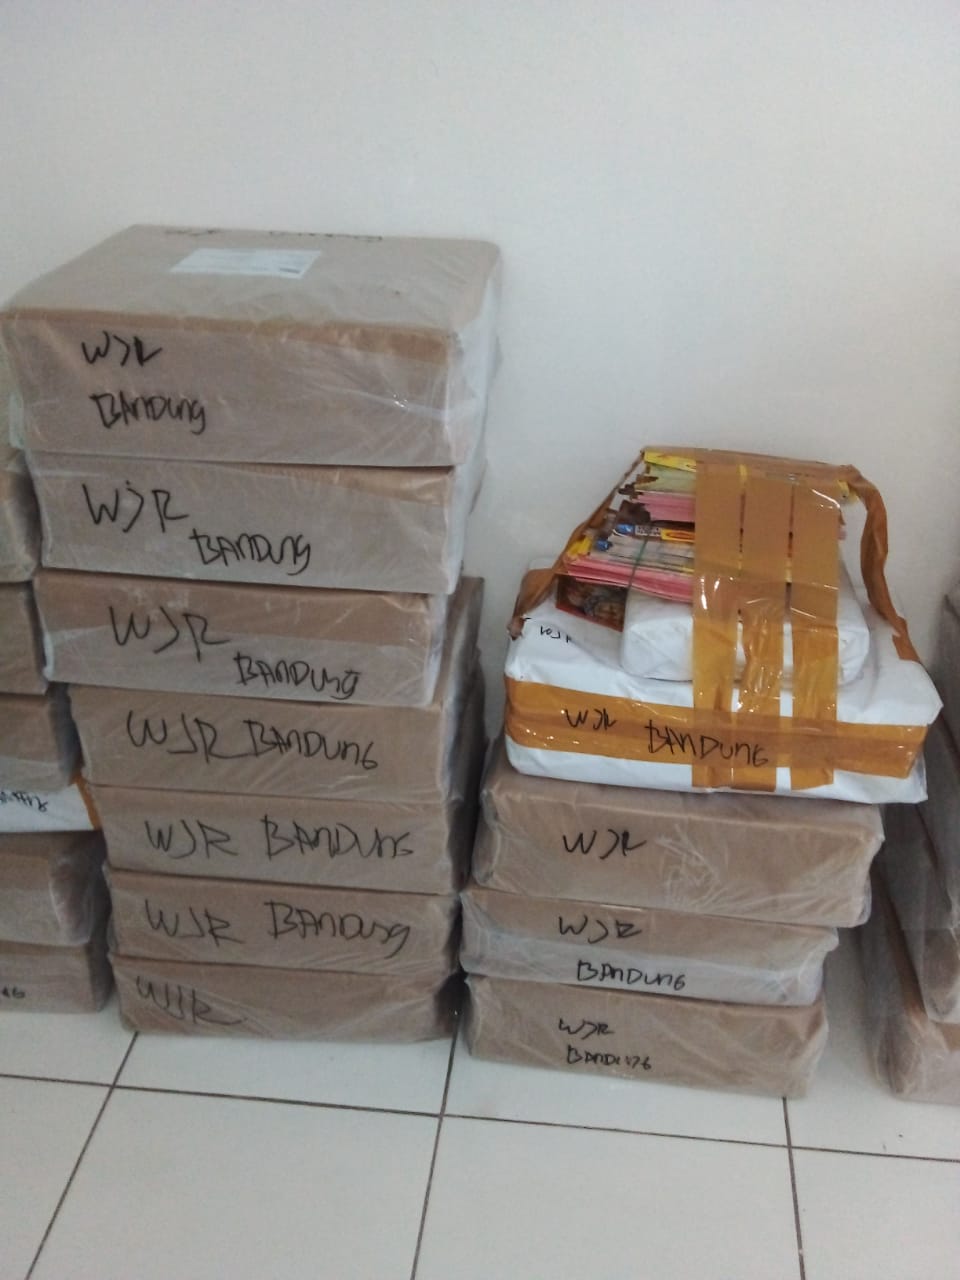 WJR
BANDUNG
WJR
BANDUNG
WJR
BANDUNG
WJR BANDUNG
WJR BANDUNG
WJR BANDUNG
WJR
WJR BANDUNG
WJR
WJR
BANDUNG
WJR
BANDUNG